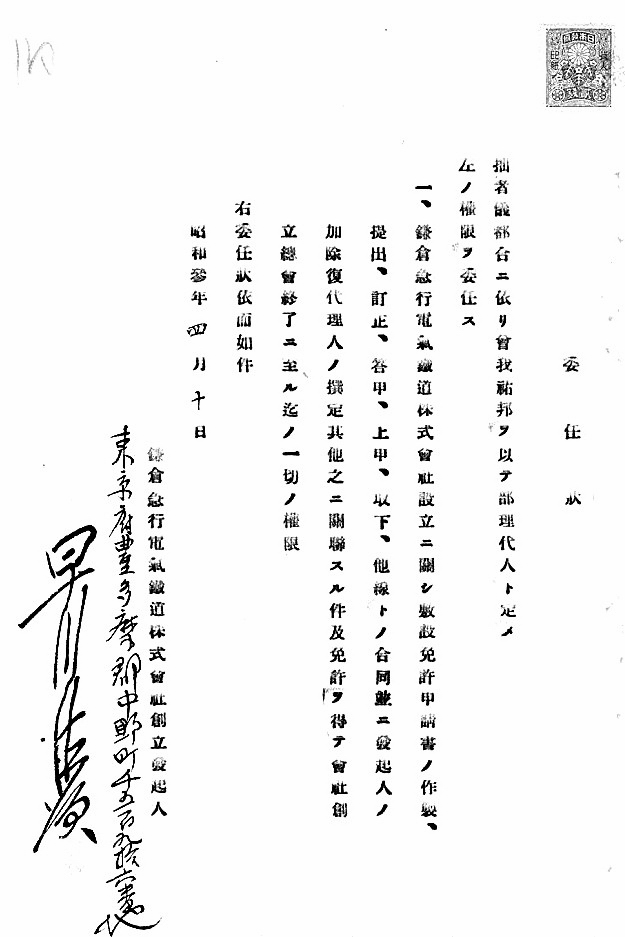 委任狀
拙者儀都合ニ依リ曾我祐邦ヲ以テ部理代人ト定メ
左ノ權限ヲ委任ス
一、鎌倉急行電氣鐵道株式會社設立ニ關シ敷設免許申請書ノ作製、
提出、訂正、答申、上申、取下、他線トノ合同並ニ發起人ノ
加除復代理人ノ撰定其他之ニ關聯スル件及免許ヲ得テ會社創
立總會終了ニ至ル迄ノ一切ノ權限
右委任狀依而如件
昭和參年四月十日
鎌倉急行電氣鐵道株式會社創立發起人
東京府豊多摩郡中野町千五百九拾六番地
早川